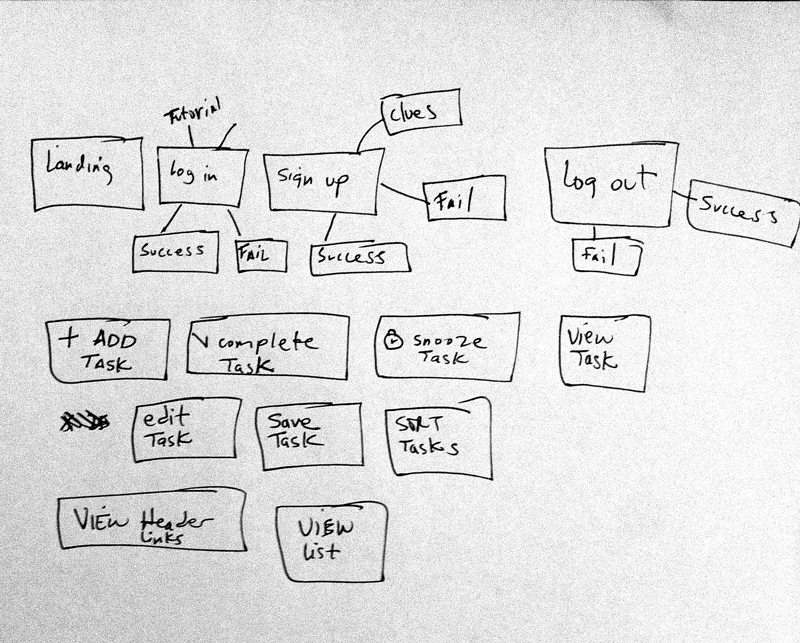 Tutorial
clues
Landing
Log in
Sign up
Fail
Log out
Success
Success
FAIL
Success
Fail
+ ADD
TASK
complete
Task
Snooze
Task
View
Task
edit
Task
Save
Task
SORT
Tasks
VIEW Header
Links
VIEW
List